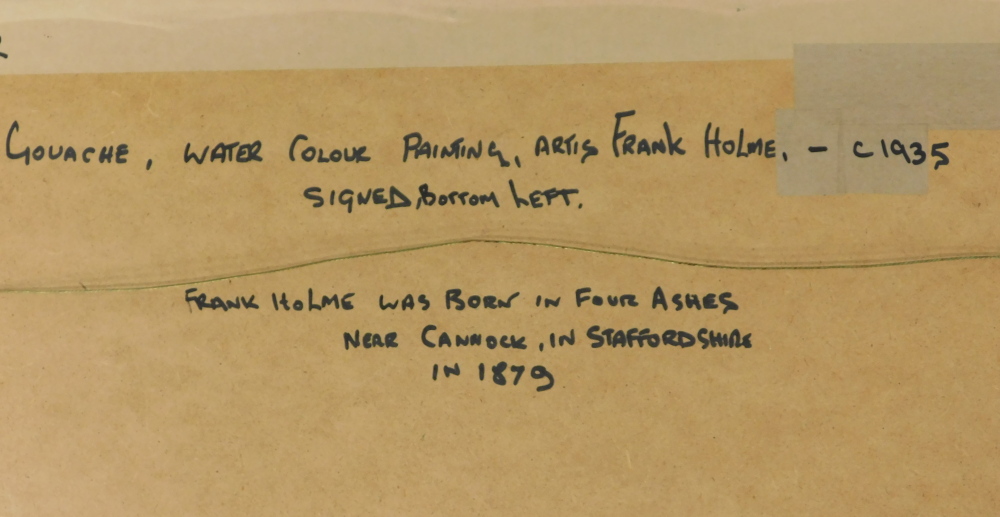 GOUACHE, WATER COLOUR PAINTING, ARTIS FRANK HOLME. - C1935
SIGNED, BOTTOM LEFT.
FRANK HOLME WAS BORN IN FOUR ASHES
NEAR CANNOCK, IN STAFFORDSHIRE
IN 1879